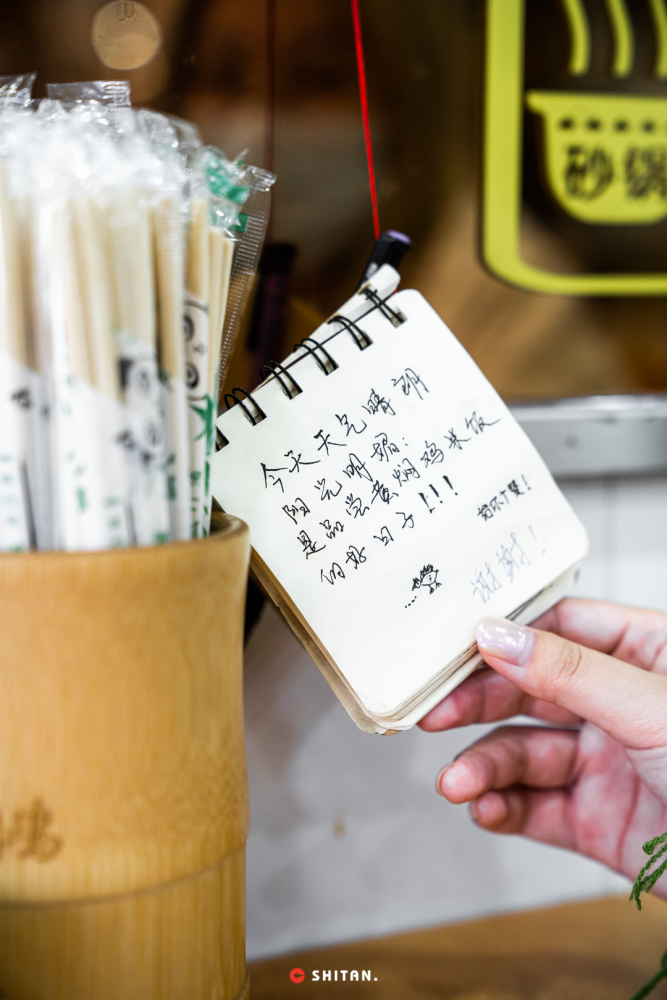 今天天气晴朗
阳光明媚:
是品尝黄焖鸡米饭
的好日子!!!
给你J赞!
谢谢!
砂锅
鸿
SHITAN.